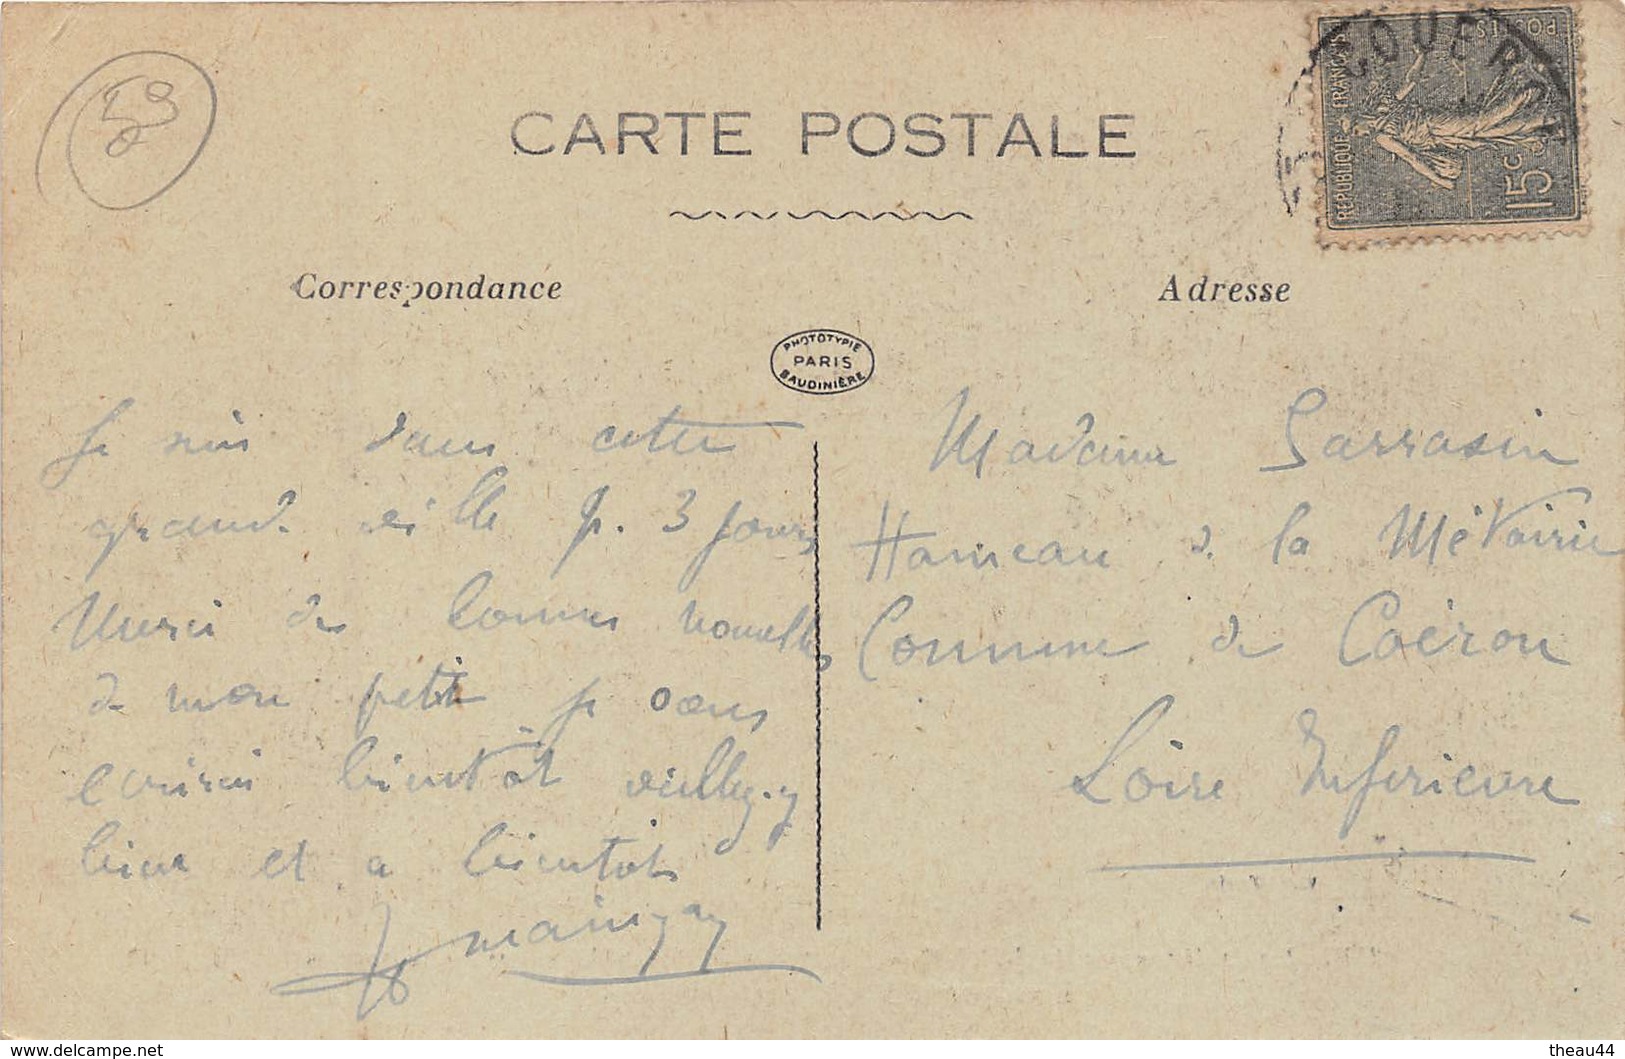 59
CARTE POSTALE
COUERON
REPUBLIQUE FRANÇAISE
POSTES
15c
Correspondance
Adresse
PHOTOTYPIE
PARIS
BAUDINIÈRE
Je suis dans cette
grande ville p. 3 jours
Merci des bonnes nouvelles
de mon petit je vous
écrirai bientôt
bien et a bientôt
Madame Sarrasin
Hameau de la Métairie
Commune de Coëron
Loire Inferieure
www.delcampe.net
theau44